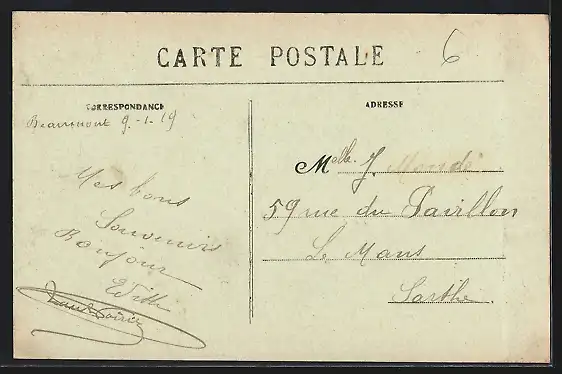 CARTE POSTALE
6
CORRESPONDANCE
ADRESSE
Beaumont 9-1-19
Mes bons
Souvenirs
Bonjour
Edith
Melle. J.
59 rue du Pavillon
Le Mans
Sarthe.